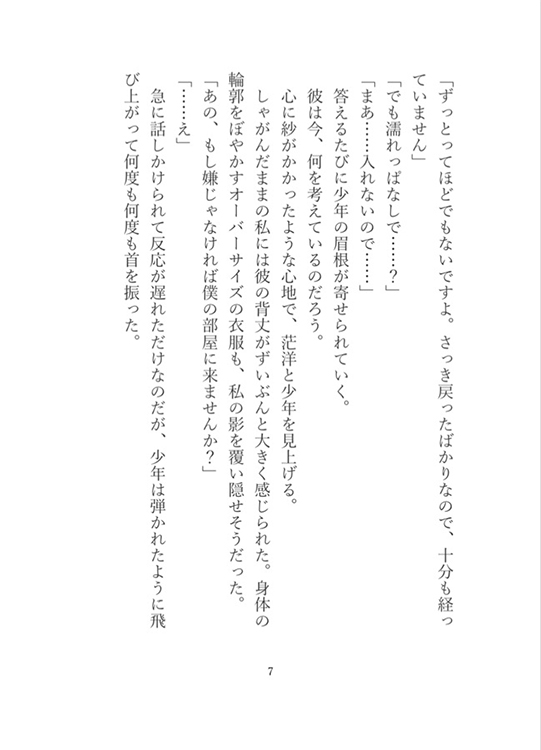 「ずっとってほどでもないですよ。さっき戻ったばかりなので、十分も経っ
ていません」
「でも濡れっぱなしで……？」
「まあ……入れないので……」
答えるたびに少年の眉根が寄せられていく。
彼は今、何を考えているのだろう。
心に紗がかかったような心地で、茫洋と少年を見上げる。
しゃがんだままの私には彼の背丈がずいぶんと大きく感じられた。身体の
輪郭をぼやかすオーバーサイズの衣服も、私の影を覆い隠せそうだった。
「あの、もし嫌じゃなければ僕の部屋に来ませんか？」
「……え」
急に話しかけられて反応が遅れただけなのだが、少年は弾かれたように飛
び上がって何度も何度も首を振った。
7